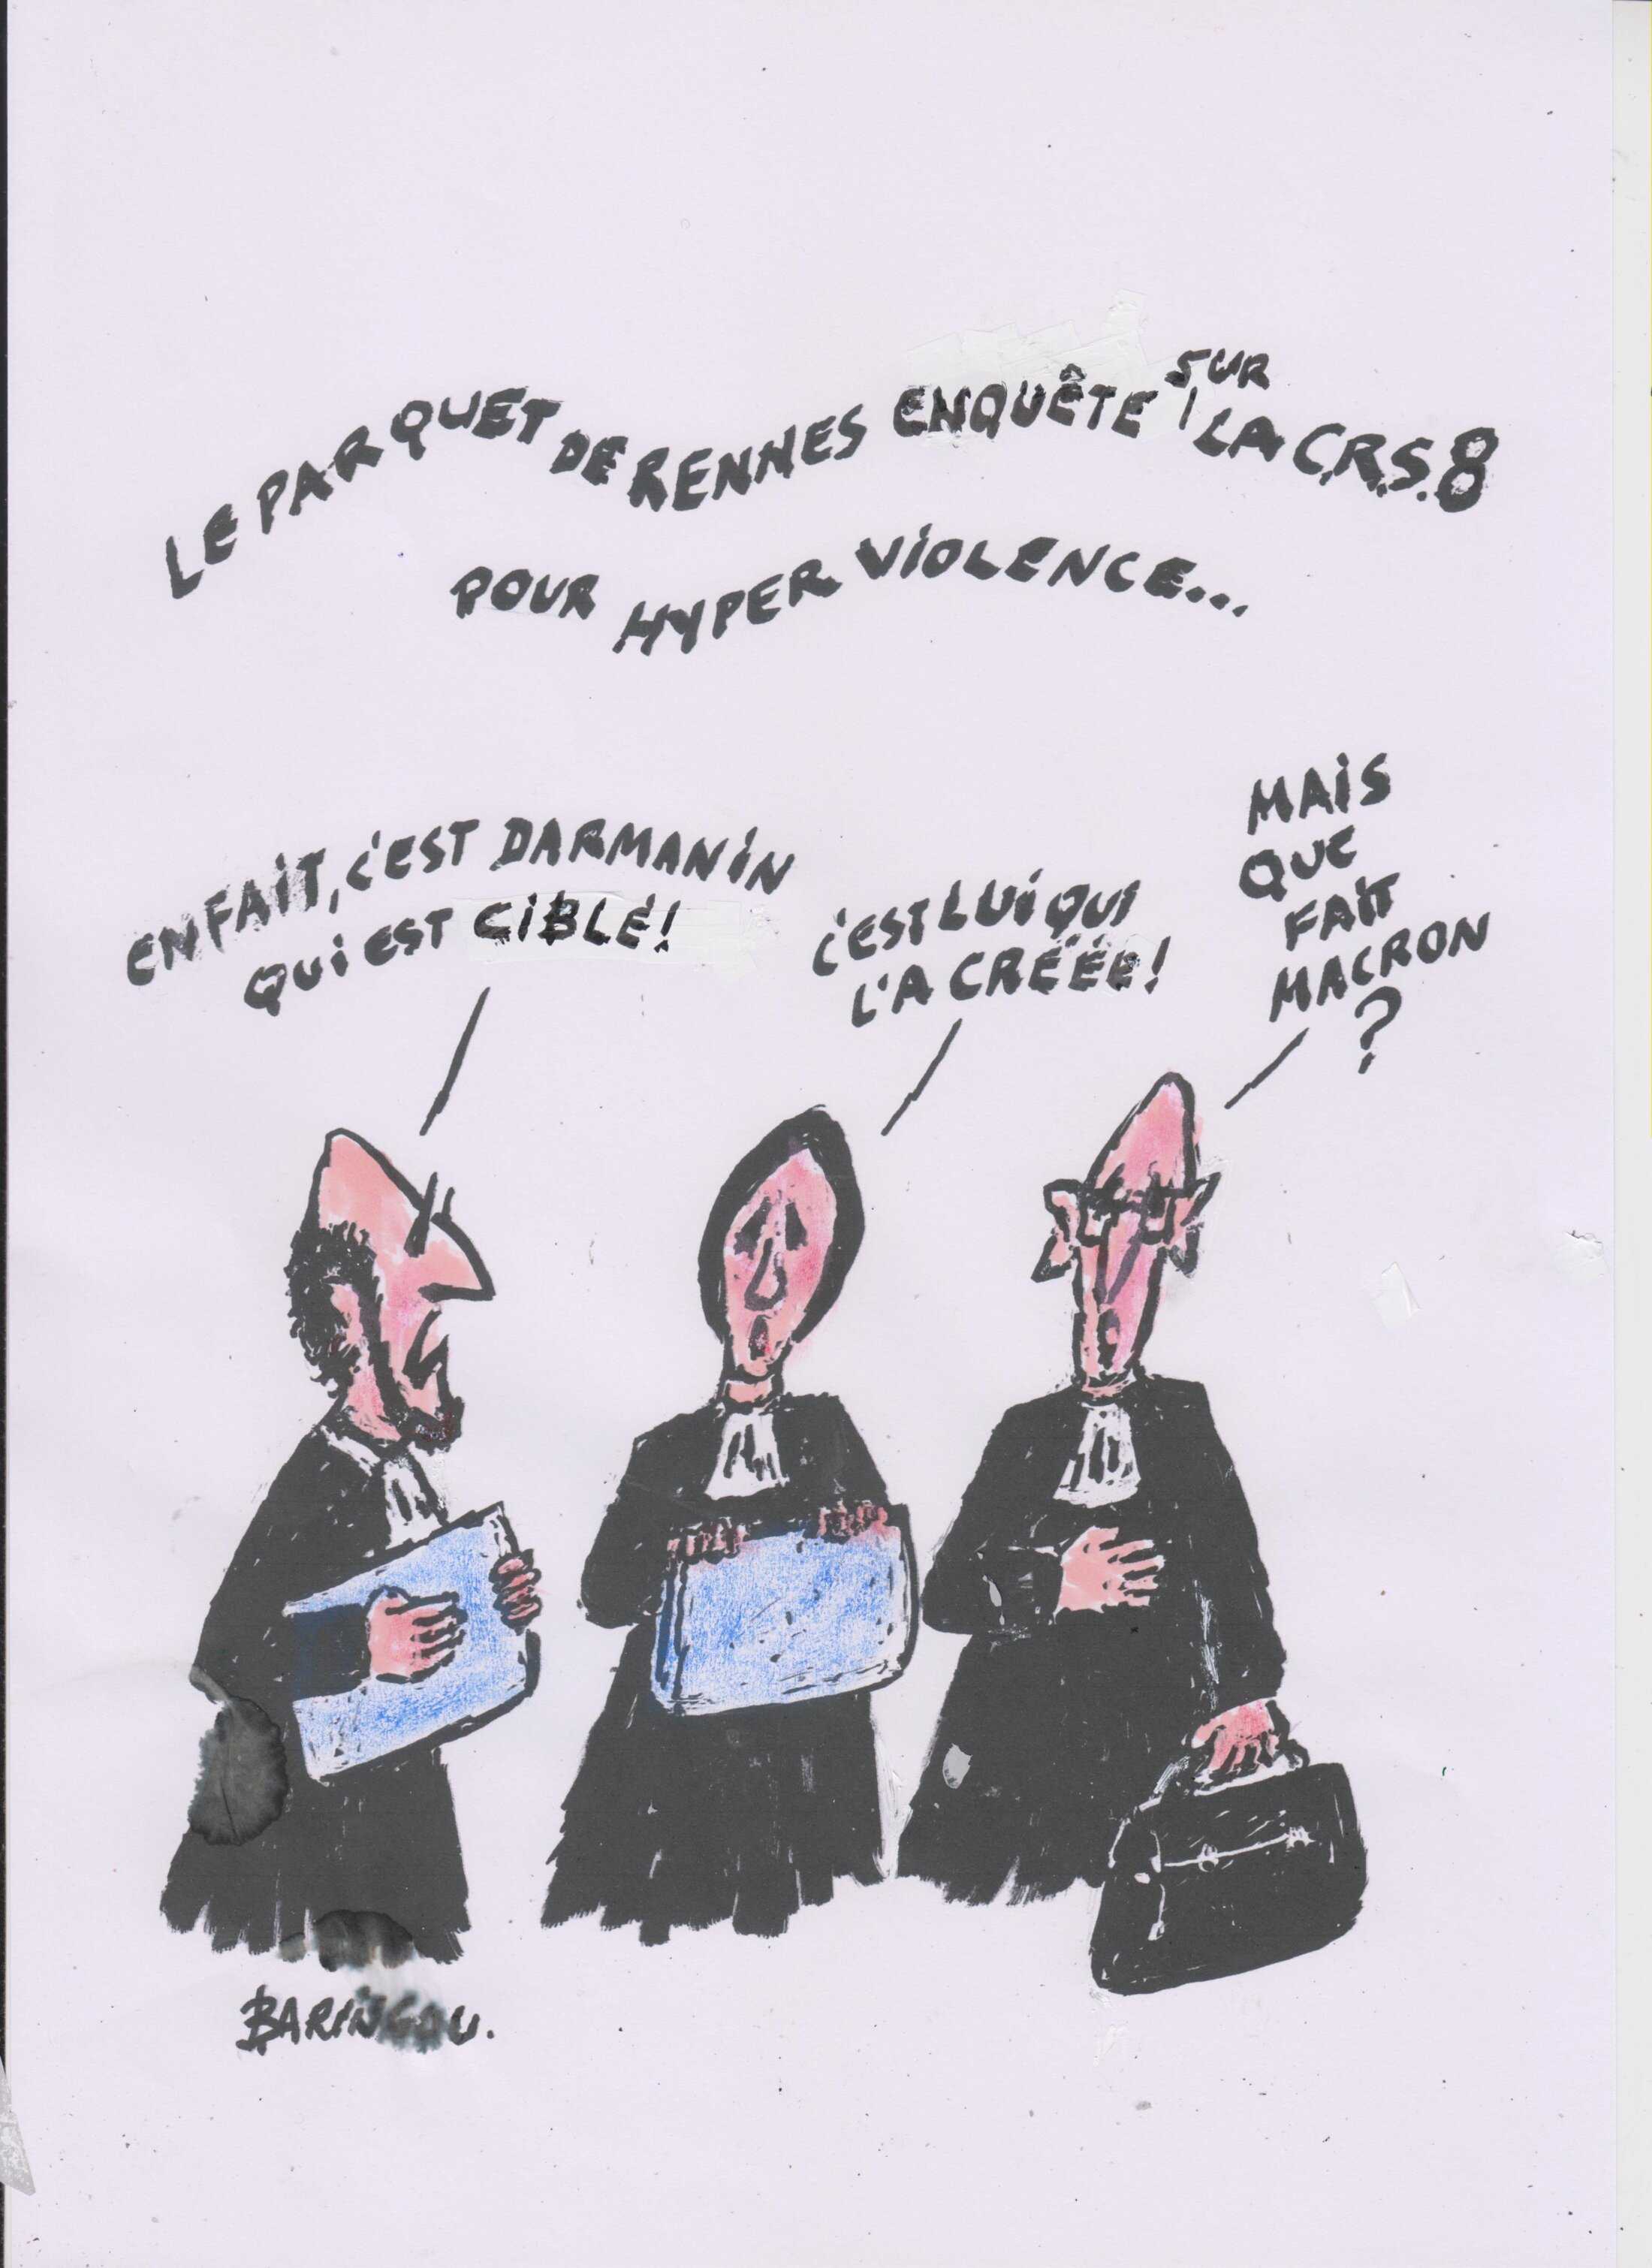 LE PARQUET DE RENNES ENQUÊTE SUR LA C.R.S.8
POUR HYPER VIOLENCE...
EN FAIT, C'EST DARMANIN
QUI EST CIBLÉ!
C'EST LUI QUI
L'A CRÉÉE!
MAIS
QUE
FAIT
MACRON
?
BARINGOU.